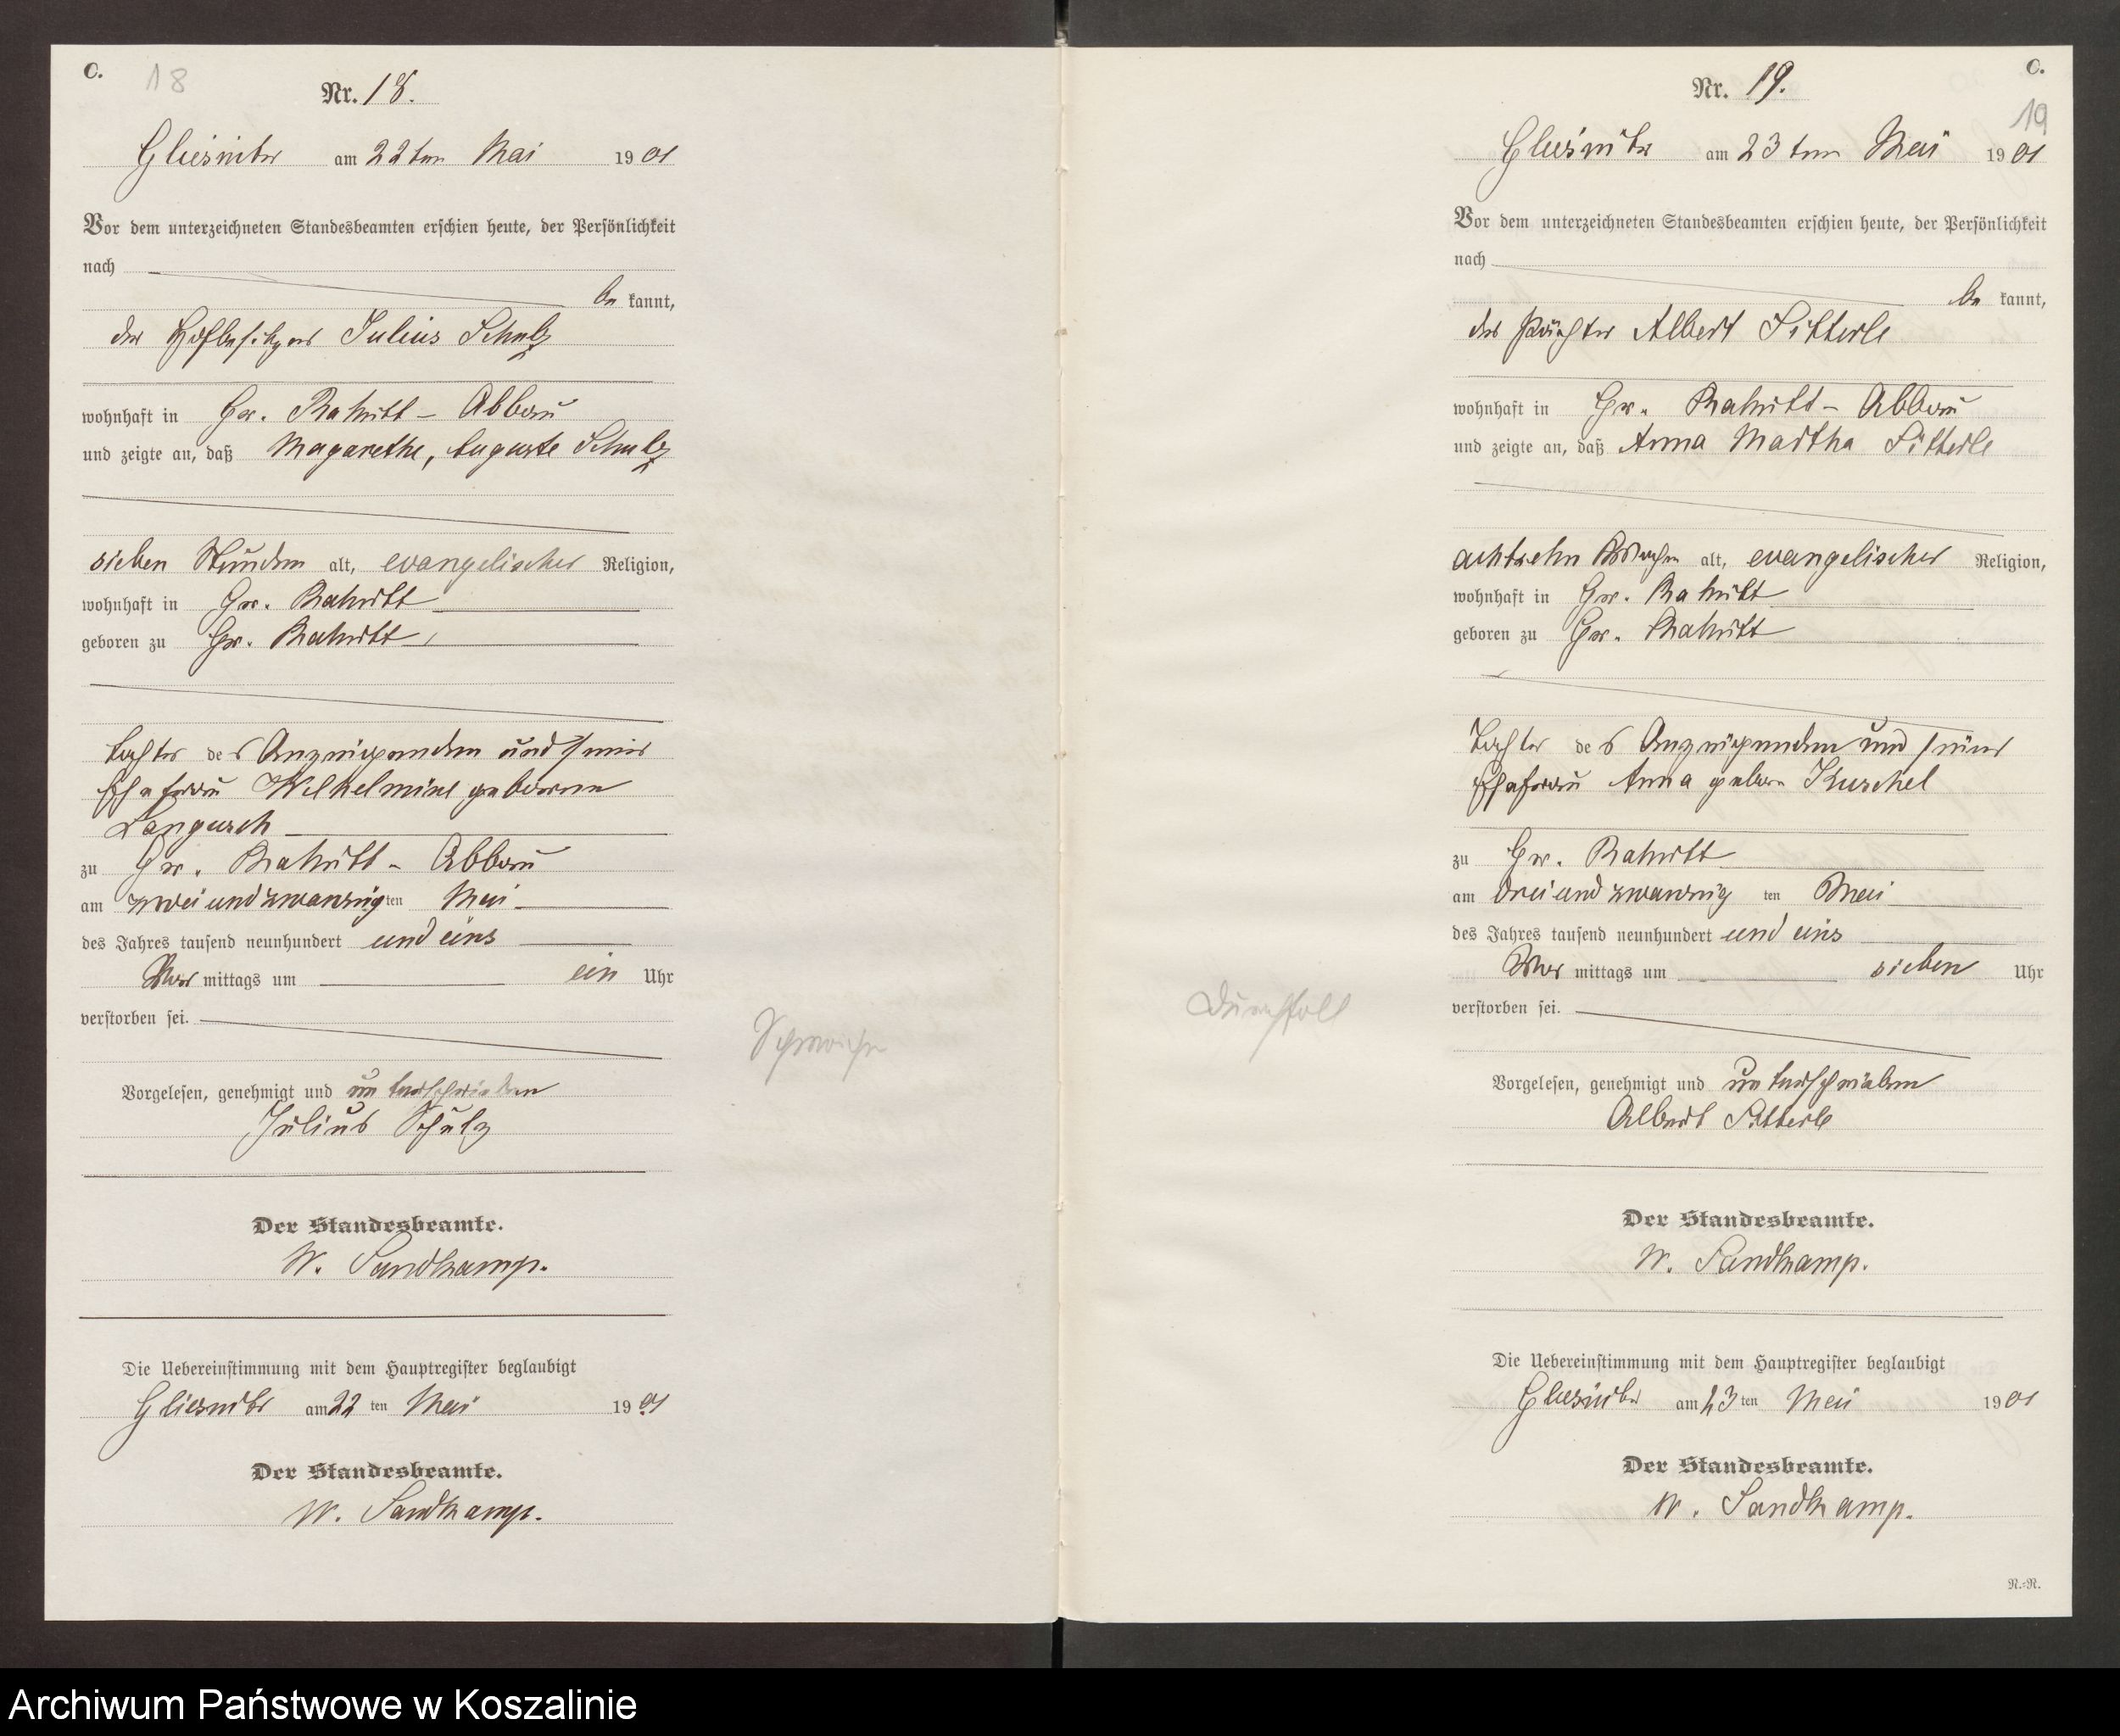 C.
18
Nr. 18.
Gliesnitz am 22ten Mai 1901
Vor dem unterzeichneten Standesbeamten erschien heute, der Persönlichkeit
nach
be kannt,
der Hofbesitzer Julius Schulz
wohnhaft in Gr. Rakitt - Abbau
und zeigte an, daß Magarethe, Auguste Schulz
sieben Stunden alt, evangelischer Religion,
wohnhaft in Gr. Rakitt
geboren zu Gr. Rakitt
Tochter des Anzeigenden und seiner
Ehefrau Wilhelmine geborene
Langusch
zu Gr. Rakitt - Abbau
am zweiundzwanzigten Mai
des Jahres tausend neunhundert und eins
Vor mittags um ein Uhr
verstorben sei.
Vorgelesen, genehmigt und unterschrieben
Julius Schulz
Der Standesbeamte.
W. Sandkamp.
Die Uebereinstimmung mit dem Hauptregister beglaubigt
Gliesnitz am 22 ten Mai 1901
Der Standesbeamte.
W. Sandkamp.
Schwäche
C.
19
Nr. 19.
Gliesnitz am 23ten Mai 1901
Vor dem unterzeichneten Standesbeamten erschien heute, der Persönlichkeit
nach
be kannt,
der Pächter Albert Sitterle
wohnhaft in Gr. Rakitt - Abbau
und zeigte an, daß Anna Martha Sitterle
achtzehn Wochen alt, evangelischer Religion,
wohnhaft in Gr. Rakitt
geboren zu Gr. Rakitt
Tochter des Anzeigenden und seiner
Ehefrau Anna gebor. Kuschel
zu Gr. Rakitt
am dreiundzwanzig ten Mai
des Jahres tausend neunhundert und eins
Vor mittags um sieben Uhr
verstorben sei.
Durchfall
Vorgelesen, genehmigt und unterschrieben
Albert Sitterle
Der Standesbeamte.
W. Sandkamp.
Die Uebereinstimmung mit dem Hauptregister beglaubigt
Gliesnitz am 23 ten Mai 1901
Der Standesbeamte.
W. Sandkamp.
N.-N.
Archiwum Państwowe w Koszalinie